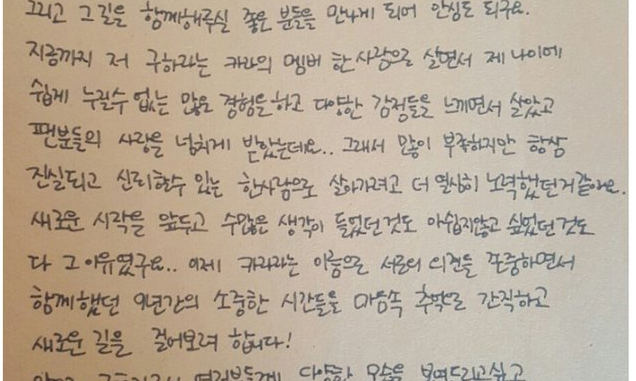 그리고 그 길을 함께해주실 좋은 분들을 만나게 되어 안심도 되구요.
지금까지 저 구하라는 카라의 멤버 한 사람으로 살면서 제 나이에
쉽게 누릴수 없는 많은 경험을 하고 다양한 감정들을 느끼면서 살았고
팬분들의 사랑을 넘치게 받았는데요.. 그래서 많이 부족하지만 항상
진실되고 신뢰할수 있는 한사람으로 살아가려고 더 열심히 노력했던거 같아요.
새로운 시작을 앞두고 수많은 생각이 들었던것도 아쉽지않고 싶었던것도
다 그 이유였구요.. 이제 카라라는 이름으로 서로의 의견을 존중하면서
함께했던 9년간의 소중한 시간들을 마음속 추억으로 간직하고
새로운 길을 걸어보려 합니다!
여러분들께 다양한 모습을 보여드리고싶고